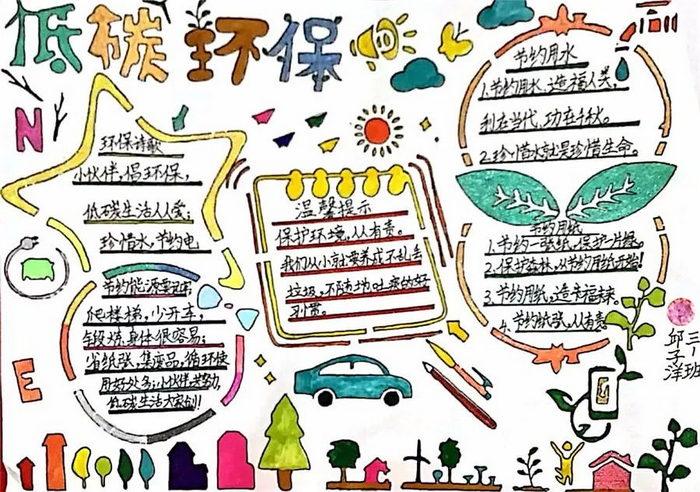 低碳环保
N
环保诗歌
小伙伴,倡环保,
低碳生活人人爱;
珍惜水,节约电
节约能源要记牢;
爬楼梯,少开车,
锻炼身体很容易;
省纸张,集废品,循环使
用好处多;小伙伴,共努力,
低碳生活大家创!
E
温馨提示
保护环境,人人有责。
我们从小就要养成不乱丢
垃圾,不随地吐痰的好
习惯。
节约用水
1.节约用水、造福人类,
利在当代,功在千秋。
2.珍惜水就是珍惜生命。
节约用纸
1.节约一张纸,保护一片绿
2.保护森林,从节约用纸开始!
3.节约用纸,造幸福
4.节约纸张,人有责
三(1)班
邱子洋